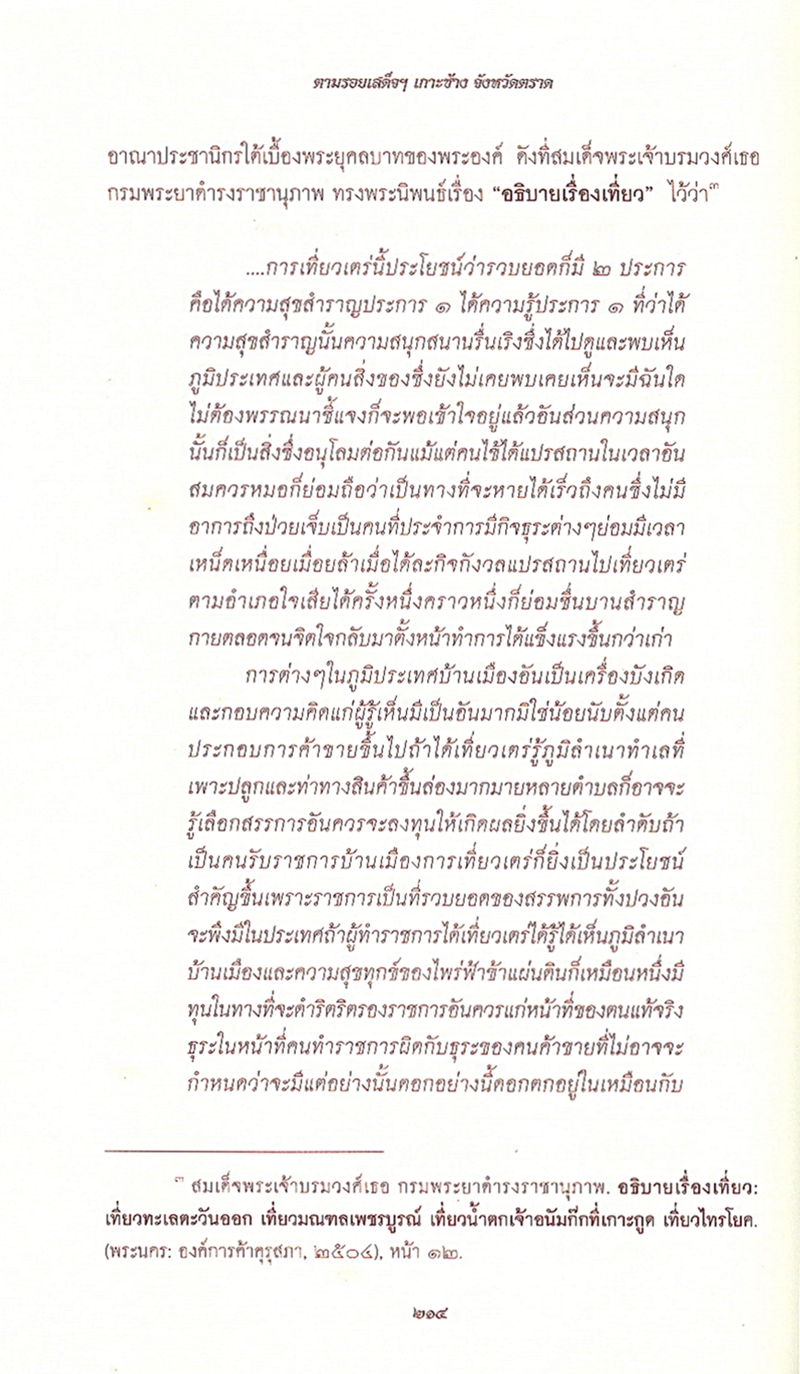 ตามรอยเสด็จฯ เกาะช้าง จังหวัดตราด
อาณาประชานิกรใต้เบื้องพระยุคลบาทของพระองค์ ดังที่สมเด็จพระเจ้าบรมวงศ์เธอ
กรมพระยาดำรงราชานุภาพ ทรงพระนิพนธ์เรื่อง “อธิบายเรื่องเที่ยว” ไว้ว่า๓
....การเที่ยวเตร่นี้ประโยชน์ว่ารวบยอดก็มี ๒ ประการ
คือได้ความสุขสำราญประการ ๑ ได้ความรู้ประการ ๑ ที่ว่าได้
ความสุขสำราญนั้นความสนุกสนานรื่นเริงซึ่งได้ไปดูและพบเห็น
ภูมิประเทศและผู้คนสิ่งของซึ่งยังไม่เคยพบเคยเห็นจะมีฉันใด
ไม่ต้องพรรณนาชี้แจงก็จะพอเข้าใจอยู่แล้วอันส่วนความสนุก
นั้นก็เป็นสิ่งซึ่งอนุโลมต่อกันแม้แต่คนไข้ได้แปรสถานในเวลาอัน
สมควรหมอก็ย่อมถือว่าเป็นทางที่จะหายได้เร็วถึงคนซึ่งไม่มี
อาการถึงป่วยเจ็บเป็นคนที่ประจำการมีกิจธุระต่างๆย่อมมีเวลา
เหน็ดเหนื่อยเมื่อยล้าเมื่อได้ละกิจกังวลแปรสถานไปเที่ยวเตร่
ตามอำเภอใจเสียได้ครั้งหนึ่งคราวหนึ่งก็ย่อมชื่นบานสำราญ
กายตลอดจนจิตใจกลับมาตั้งหน้าทำการได้แข็งแรงขึ้นกว่าเก่า
การต่างๆในภูมิประเทศบ้านเมืองอันเป็นเครื่องบังเกิด
และกอบความคิดแก่ผู้รู้เห็นมีเป็นอันมากมิใช่น้อยนับตั้งแต่คน
ประกอบการค้าขายขึ้นไปถ้าได้เที่ยวเตร่รู้ภูมิลำเนาทำเลที่
เพาะปลูกและท่าทางสินค้าขึ้นล่องมากมายหลายตำบลก็อาจจะ
รู้เลือกสรรการอันควรจะลงทุนให้เกิดผลยิ่งขึ้นได้โดยลำดับถ้า
เป็นคนรับราชการบ้านเมืองการเที่ยวเตร่ก็ยิ่งเป็นประโยชน์
สำคัญขึ้นเพราะราชการเป็นที่รวบยอดของสรรพการทั้งปวงอัน
จะพึงมีในประเทศถ้าผู้ทำราชการได้เที่ยวเตร่ได้รู้ได้เห็นภูมิลำเนา
บ้านเมืองและความสุขทุกข์ของไพร่ฟ้าข้าแผ่นดินก็เหมือนหนึ่งมี
ทุนในทางที่จะดำริตริตรองราชการอันควรแก่หน้าที่ของตนแท้จริง
ธุระในหน้าที่คนทำราชการผิดกับธุระของคนค้าขายที่ไม่อาจจะ
กำหนดว่าจะมีแต่อย่างนั้นตอกอย่างนี้ตอกตกอยู่ในเหมือนกับ
๓ สมเด็จพระเจ้าบรมวงศ์เธอ กรมพระยาดำรงราชานุภาพ. อธิบายเรื่องเที่ยว:
เที่ยวทะเลตะวันออก เที่ยวมณฑลเพชรบูรณ์ เที่ยวน้ำตกเจ้าอนัมก๊กที่เกาะกูด เที่ยวไทรโยค.
(พระนคร: องค์การค้าคุรุสภา, ๒๕๐๔), หน้า ๑๒.
๒๑๔